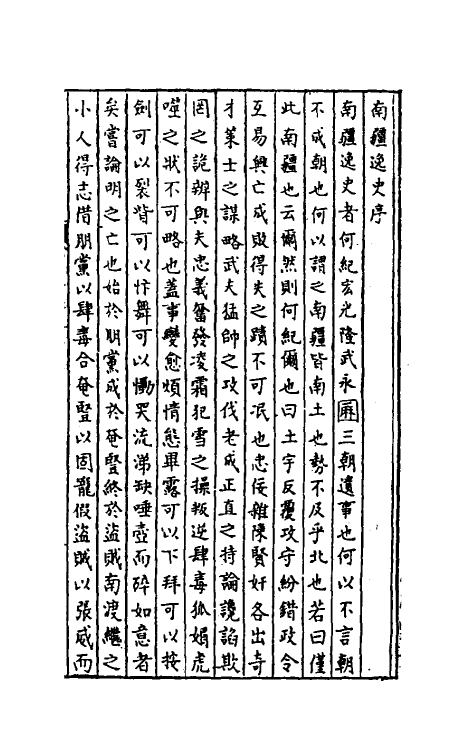 南疆逸史序
南疆逸史者何紀宏光隆武永厤三朝遺事也何以不言朝
不成朝也何以謂之南疆皆南土也勢不及乎北也若曰僅
此南疆也云爾然則何紀爾也曰土宇反覆攻守紛錯政令
互易興亡成敗得失之蹟不可泯也忠佞雜陳賢奸各出奇
才策士之謀略武夫猛帥之攻伐老成正直之持論讒諂欺
罔之詭辨與夫忠義奮發凌霜犯雪之操叛逆肆毒狐媚虎
噬之狀不可略也蓋事變愈煩情態畢露可以下拜可以按
劍可以裂眥可以忭舞可以慟哭流涕缺唾壺而碎如意者
矣嘗論明之亡也始於朋黨成於奄豎終於盜賊南渡繼之
小人得志借朋黨以肆毒合奄豎以固寵假盜賊以張威而